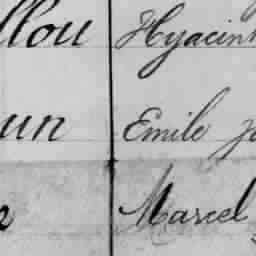 llou Hyacin
un Emile
Marcel